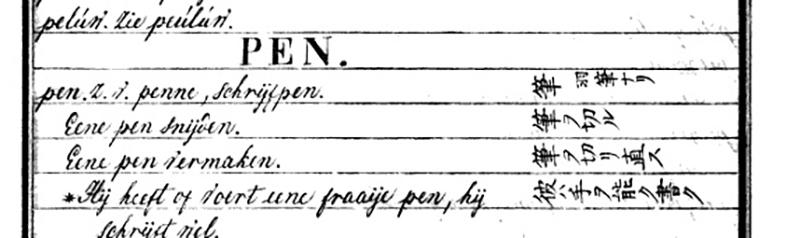 pelúw. Zie peúlúw.
PEN.
pen. Z. v. penne, schrijfpen. 筆 羽筆ナリ
Eene pen snijden. 筆ヲ切ル
Eene pen vermaken. 筆ヲ切リ直ス
*Hij heeft of voert eene fraaije pen, hij 彼ハ手ヲ能ク書ク
schrijft wel.